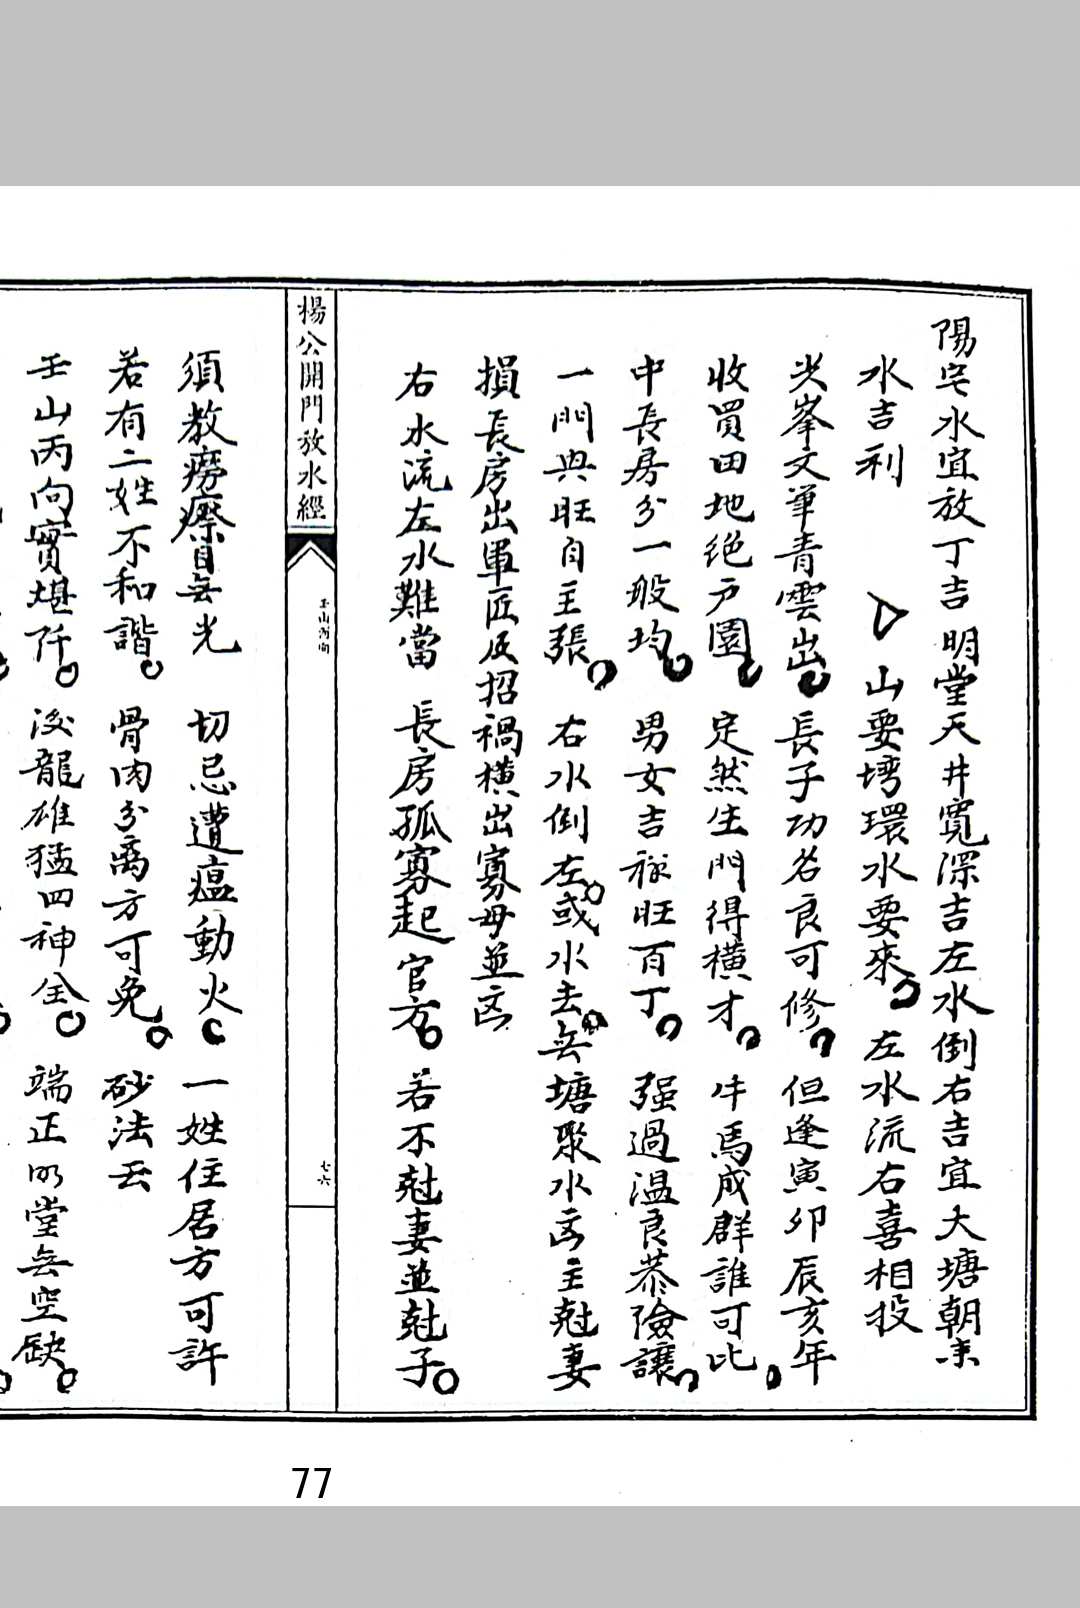 陽宅水宜放丁吉 明堂天井寬深吉左水倒右吉宜大塘朝來
水吉利 山要塆環水要來 左水流右喜相投
尖峯文筆青雲出 長子功名良可修 但逢寅卯辰亥年
收買田地绝户園 定然生門得橫才 牛馬成群誰可比
中長房分一般均 男女吉祥旺百丁 强過温良恭險讓
一門興旺自主張 右水倒左或水去無塘聚水凶主尅妻
損長房出軍匠反招禍橫出寡母並凶
右水流左水難當 長房孤寡起官方 若不尅妻並尅子
楊公開門放水經
壬山丙向
七六
須教癆瘵自無光 切忌遭瘟動火 一姓住居方可許
若有二姓不和諧 骨肉分离方可免 砂法云
壬山丙向實堪阡 後龍雄猛四神全 端正明堂無空缺
77